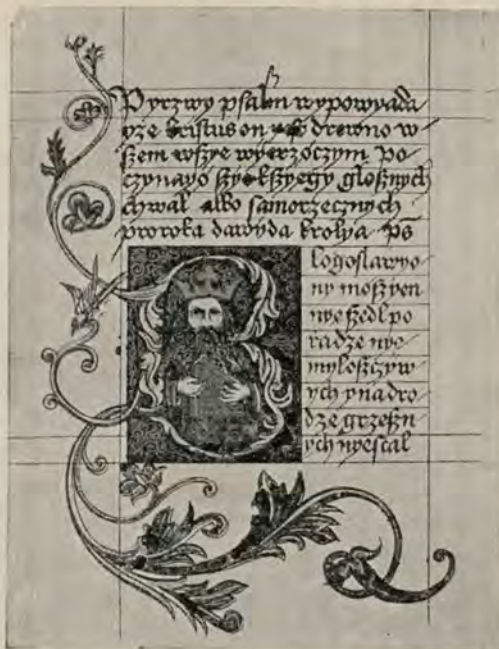 Pyrzwy psalm wypowyada
yze kristus on yako drewno w
szem wszye wyerzoczym Po
czynayo szyøkszyegy gloſznych
chwal albo samorzecznych
proroka dawyda krolya ps
B logoslawyo
ny moſzyen
nye szedl po
radze nye
myloſczyw
ych y nadro
dze grzeſzn
ych nyestal